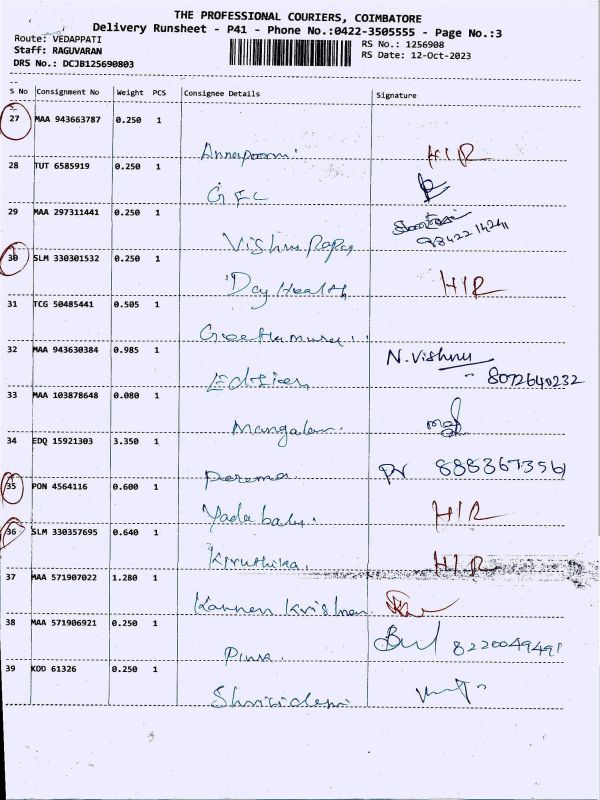 THE PROFESSIONAL COURIERS, COIMBATORE
Delivery Runsheet - P41 - Phone No.:0422-3505555 - Page No.:3
Route: VEDAPPATI
Staff: RAGUVARAN
DRS No.: DCJB125690803
RS No.: 1256908
RS Date: 12-Oct-2023
S No Consignment No Weight PCS Consignee Details Signature
27 MAA 943663787 0.250 1
Annapoorni HIR
28 TUT 6585919 0.250 1
GEC
29 MAA 297311441 0.250 1
Vishnu Papa
30 SLM 330301532 0.250 1
Day Health HIR
31 TCG 50485441 0.505 1
32 MAA 943630384 0.985 1
N. Vishnu
- 8072640232
33 MAA 103878648 0.080 1
Mangalam
34 EDQ 15921303 3.350 1
8883673561
35 PON 4564116 0.600 1
HIR
36 SLM 330357695 0.640 1
Kiruthika HIR
37 MAA 571907022 1.280 1
Kannan Krishnan
38 MAA 571906921 0.250 1
8220049491
39 KOD 61326 0.250 1